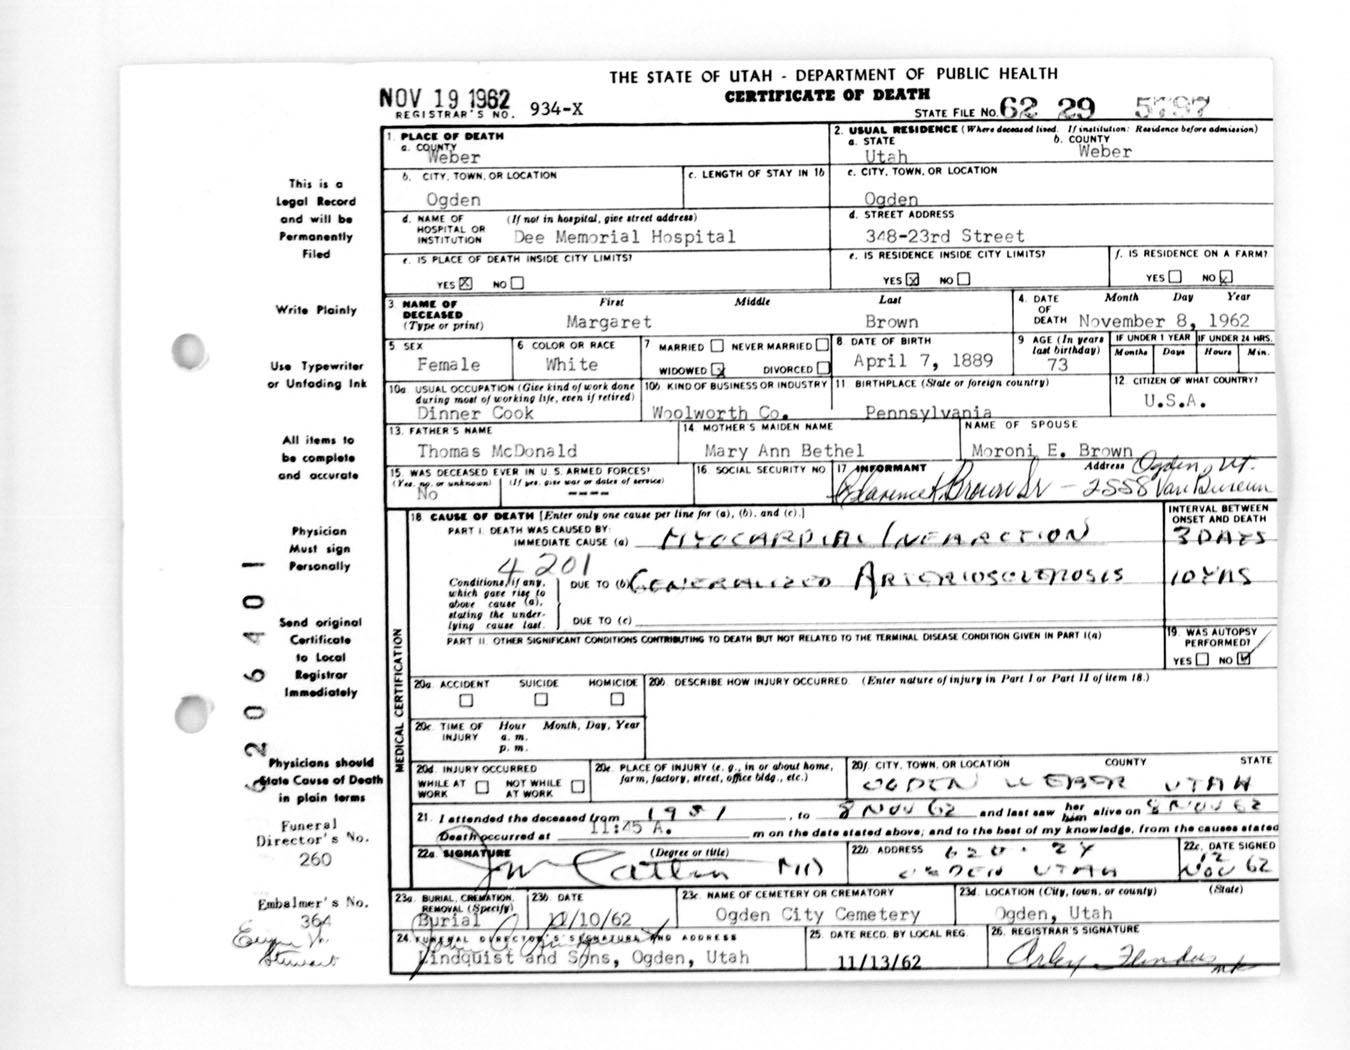 THE STATE OF UTAH - DEPARTMENT OF PUBLIC HEALTH
CERTIFICATE OF DEATH
NOV 19 1962
REGISTRAR'S NO. 934-X
STATE FILE NO. 62 29 5797
This is a
Legal Record
and will be
Permanently
Filed
Write Plainly
Use Typewriter
or Unfading Ink
All items to
be complete
and accurate
Physician
Must sign
Personally
Send original
Certificate
to Local
Registrar
Immediately
Physicians should
State Cause of Death
in plain terms
62 0 6401
Funeral
Director's No.
260
Embalmer's No.
364
Stewart
1. PLACE OF DEATH
a. COUNTY
Weber
2. USUAL RESIDENCE (Where deceased lived. If institution: Residence before admission)
a. STATE b. COUNTY
Utah Weber
b. CITY, TOWN, OR LOCATION
Ogden
c. LENGTH OF STAY IN 1b
c. CITY, TOWN, OR LOCATION
Ogden
d. NAME OF HOSPITAL OR INSTITUTION (If not in hospital, give street address)
Dee Memorial Hospital
d. STREET ADDRESS
348-23rd Street
e. IS PLACE OF DEATH INSIDE CITY LIMITS?
YES X NO
e. IS RESIDENCE INSIDE CITY LIMITS?
YES X NO
f. IS RESIDENCE ON A FARM?
YES NO X
3 NAME OF DECEASED (Type or print) First Middle Last
Margaret Brown
4. DATE OF DEATH Month Day Year
November 8, 1962
5. SEX
Female
6 COLOR OR RACE
White
7 MARRIED NEVER MARRIED
WIDOWED X DIVORCED
8 DATE OF BIRTH
April 7, 1889
9 AGE (In years last birthday)
73
IF UNDER 1 YEAR IF UNDER 24 HRS.
Months Days Hours Min.
10a USUAL OCCUPATION (Give kind of work done during most of working life, even if retired)
Dinner Cook
10b KIND OF BUSINESS OR INDUSTRY
Woolworth Co.
11 BIRTHPLACE (State or foreign country)
Pennsylvania
12 CITIZEN OF WHAT COUNTRY?
U.S.A.
13. FATHER'S NAME
Thomas McDonald
14 MOTHER'S MAIDEN NAME
Mary Ann Bethel
NAME OF SPOUSE
Moroni E. Brown
15. WAS DECEASED EVER IN U.S. ARMED FORCES?
(Yes, no, or unknown) (If yes, give war or dates of service)
No ----
16 SOCIAL SECURITY NO
17 INFORMANT Address
Clarence K. Brown Sr - 2558 Van Buren Ogden, Ut.
18 CAUSE OF DEATH [Enter only one cause per line for (a), (b), and (c).]
INTERVAL BETWEEN ONSET AND DEATH
PART I. DEATH WAS CAUSED BY:
IMMEDIATE CAUSE (a) MYOCARDIAL INFARCTION 3 DAYS
4201
Conditions, if any, which gave rise to above cause (a), stating the underlying cause last.
DUE TO (b) GENERALIZED ARTERIOSCLEROSIS 10 YRS
DUE TO (c)
PART II. OTHER SIGNIFICANT CONDITIONS CONTRIBUTING TO DEATH BUT NOT RELATED TO THE TERMINAL DISEASE CONDITION GIVEN IN PART I(a)
19. WAS AUTOPSY PERFORMED?
YES NO
MEDICAL CERTIFICATION
20a. ACCIDENT SUICIDE HOMICIDE
20b. DESCRIBE HOW INJURY OCCURRED. (Enter nature of injury in Part I or Part II of item 18.)
20c. TIME OF INJURY Hour Month, Day, Year
a. m.
p. m.
20d. INJURY OCCURRED
WHILE AT WORK NOT WHILE AT WORK
20e. PLACE OF INJURY (e. g., in or about home, farm, factory, street, office bldg., etc.)
20f. CITY, TOWN, OR LOCATION COUNTY STATE
OGDEN WEBER UTAH
21. I attended the deceased from 1951, to 8 NOV 62 and last saw her him alive on 8 NOV 62
Death occurred at 11:45 A. m on the date stated above; and to the best of my knowledge, from the causes stated
22a. SIGNATURE (Degree or title)
MD
22b. ADDRESS
620 - 24
OGDEN UTAH
22c. DATE SIGNED
12 NOV 62
23a. BURIAL, CREMATION, REMOVAL (Specify)
Burial
23b. DATE
11/10/62
23c. NAME OF CEMETERY OR CREMATORY
Ogden City Cemetery
23d. LOCATION (City, town, or county) (State)
Ogden, Utah
24. FUNERAL DIRECTOR'S SIGNATURE AND ADDRESS
Lindquist and Sons, Ogden, Utah
25. DATE RECD. BY LOCAL REG.
11/13/62
26. REGISTRAR'S SIGNATURE